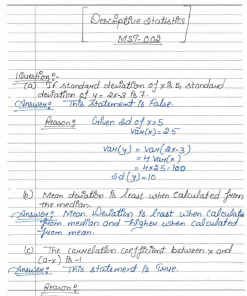 Descriptive Statistics
MST-002
Question:-
(a) If standard deviation of x is 5, standard
deviation of y = 2x-3 is 7.
Answer:- This statement is False.
Reason:- Given sd of x = 5
Var(x) = 25
Var(y) = Var(2x-3)
= 4 Var(x)
= 4x25 = 100
sd(y) = 10
b) Mean deviation is least when calculated from
the median.
Answer:- Mean Deviation is least when calculate
from median and higher when calculated
from mean.
(c) The correlation coefficient between x and
(a-x) is -1
Answer:- This statement is true.
Reason:-